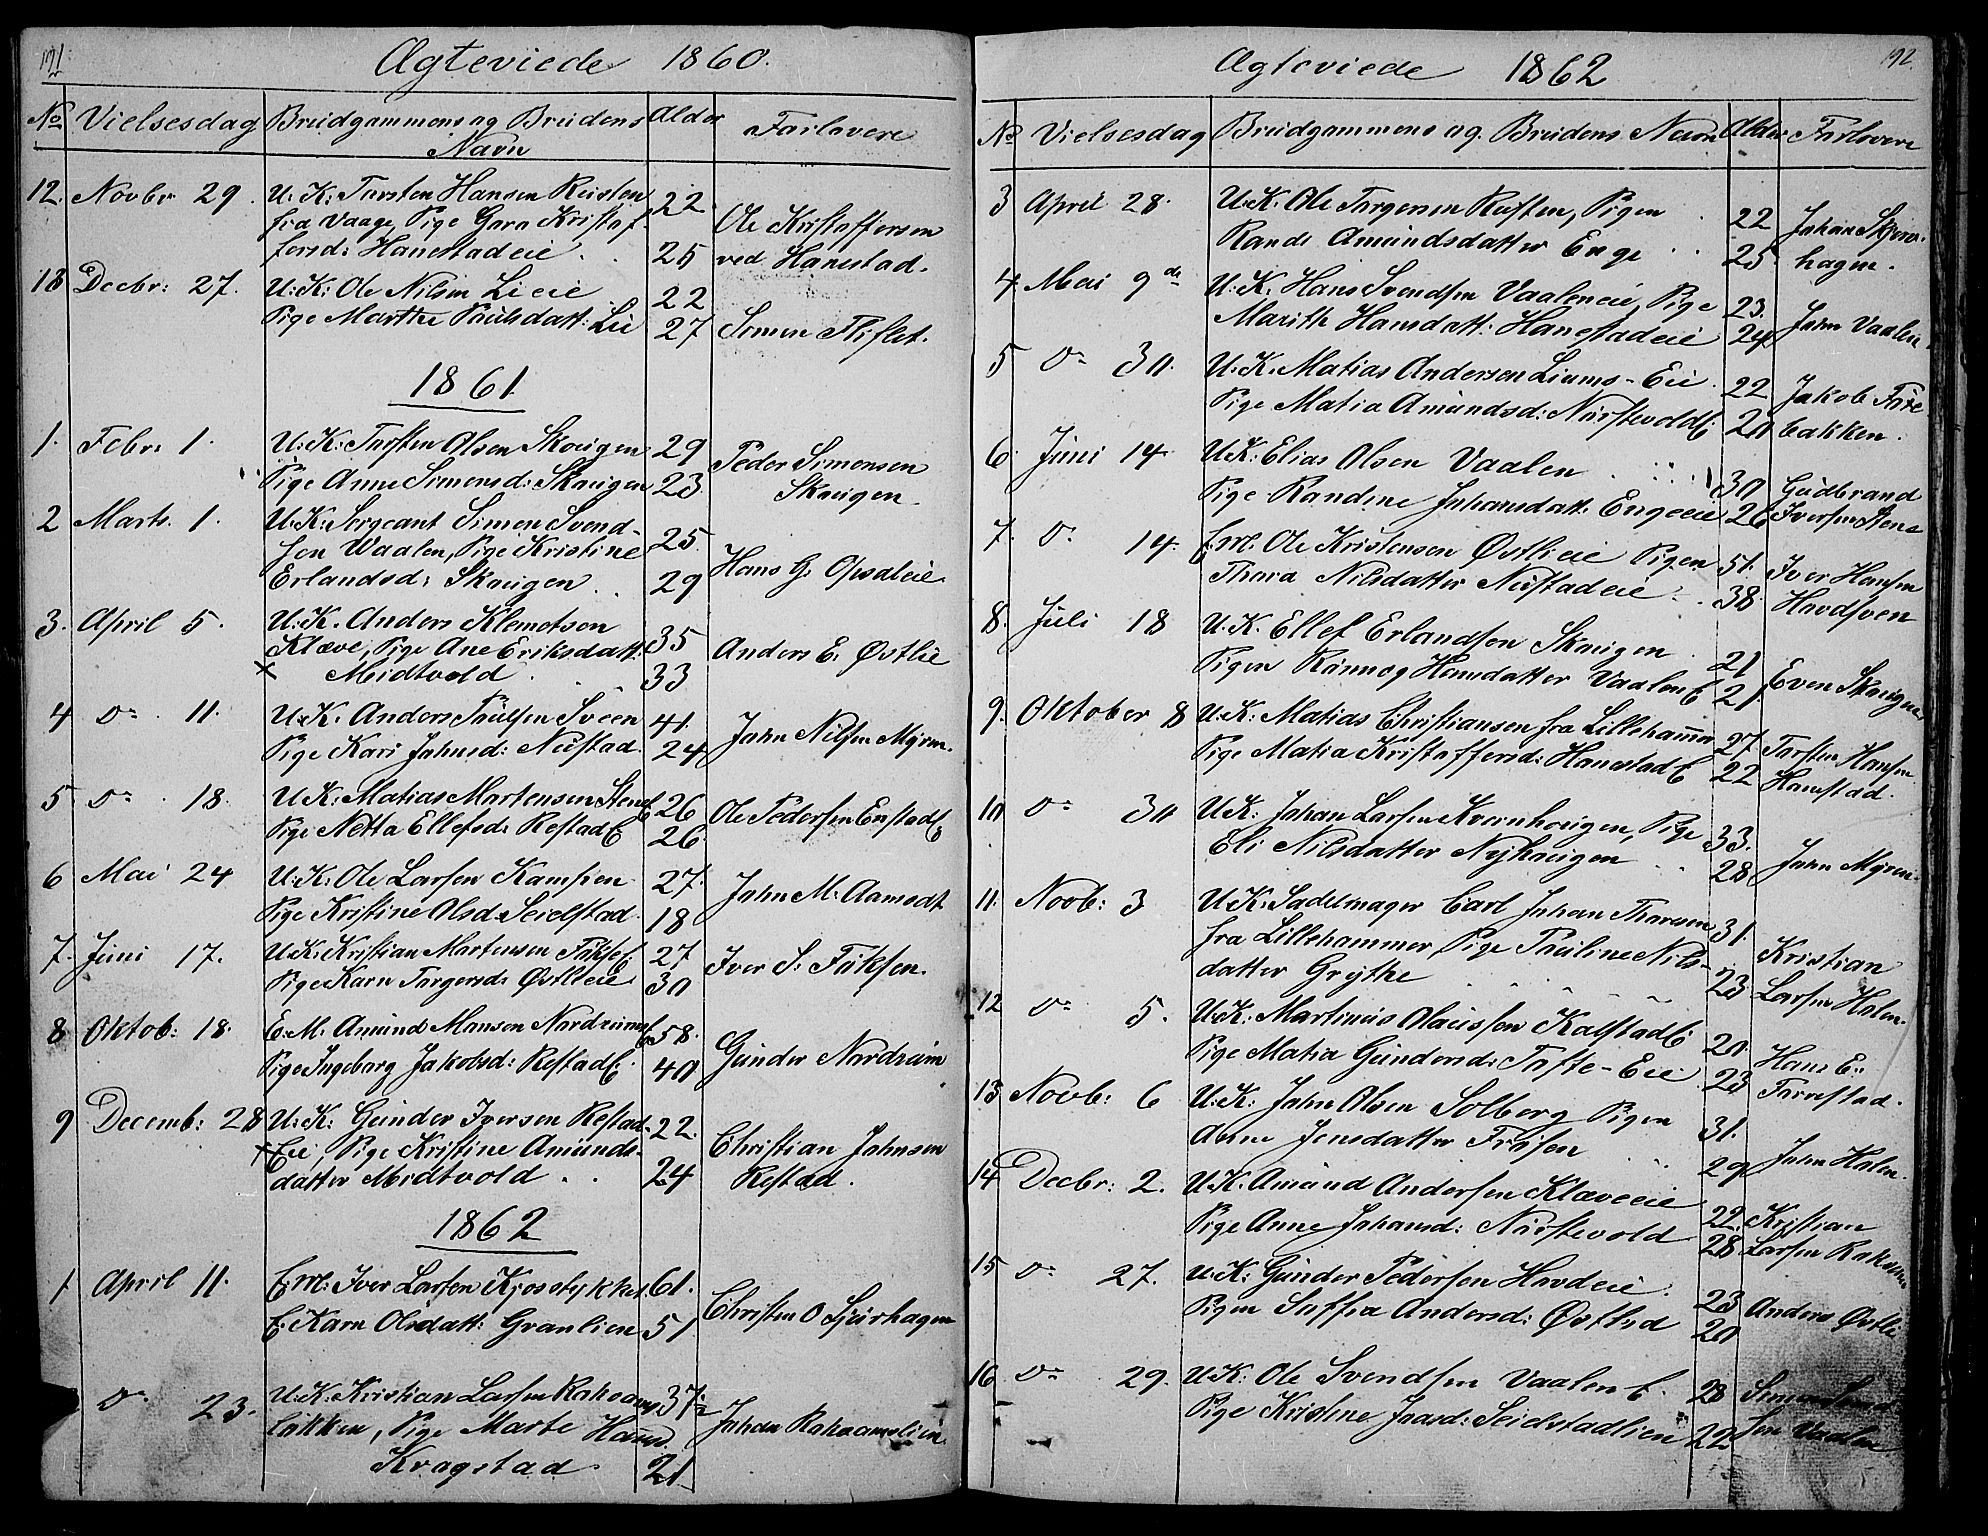 191
Ægteviede 1860.
No Vielsesdag Brudgammens ag Brudens Navn Alder Farlovere
12. Novbr 29. U: K: Tarsten Hansen Rusten 22
fra Vaage, Pige Gara Kristaf-
fersd: Hanestadeie . . 25
Ole Kristaffersen
ved Hanestad.
18 Decbr: 27. U: K: Ole Nilsen Lieie 22
Pige Marthe Paulsdatt: Lie 27 Simen Fliflet.
1861
1. Febr: 1. U: K: Tarsten Olsen Skougen 29
Pige Anne Simensd: Skougen 23.
Peder Simensen
Skougen
2 Marts. 1. U: K: Sergeant Simen Svend-
sen Waalen, Pige Kristine 25.
Erlandsd: Skougen . . 29
Hans G. Opsaleie
3. April 5. U: K. Anders Klemetsen
Klæve, Pige Ane Eriksdatt: 35
x Midtvold . 33
Anders E. Østlie
4 Do. 11. U. K. Anders Paulsen Sveen 41.
Pige Kari Jahnsd: Nustad. 24
Jahn Nilsen Myren.
5 Do. 18. U K: Matias Martensen Stens E 26
Pige Netta Ellefsd: Restad E 26.
Ole Pedersen Enstad E
6 Mai 24 U. K: Ole Larsen Kampen 27.
Pige Kristine Olsd. Seielstad. 18
Jahn M. Aamodt
7. Juni 17. U: K: Kristian Martensen Fåkse E. 27
Pige Karn Targersd: Østlieie 30
Iver S. Fåksen.
8 Oktob: 18. E. M. Amund Mansen Nordrums E 58.
Pige Ingebarg Jakobsd: Restad E. 40
Gunder Nardrum
9 Decemb: 28 U: K: Gunder Iversen Restad- 22.
x Eie, Pige Kristine Amunds-
datter Midtvold . . 24
Christian Jahnsen
Restad.
1862
1 April 11. E. M: Iver Larsen Kjosstykket. 61.
E. Karn Olsdatt: Granlien 51
Christen O
Do. 23. U: K: Kristian Larsen Rakaams 37.
løkken, Pige Marte Hansd.
Kragstad. 21
Jahan Rakaamslien
192.
Ægteviede 1862
No Vielsesdag Brudgammens ag. Brudens Navn Alder Farlovere
3 April 28. U: K. Ole Targersen Rusten, Pigen . 22
Randi Amundsdatter Enge . . 25.
Jahan Skjerve-
hagen.
4. Mai 9de U. K. Hans Svendsen Vaaleneie, Pige 23.
Marith Hansdatt: Hanestadeie 24
Jahn Vaalen
5 Do 30. U. K. Matias Andersen Liums-Eie. 22
Pige Matia Amundsd: Nustevold E. 20
Jakob Fåre
bakken.
6. Juni 14. U K: Elias Olsen Vaalen 30
Pige Randine Johansdatt: Engeeie 26
Gudbrand
Iversen Stens
7. Do. 14. E. M. Ole Kristensen Østlieie Pigen 51.
Thora Nilsdatter Nustadeie . . 38.
Iver Hansen
Havdsven
8. Juli 18 U. K. Ellef Erlandsen Skougen . 21
Pigen Rønnog Hansdatter Vaalen E 21.
Even Skougen
9. Oktober 8 U: K: Matias Christiansen fra Lillehamer 27
Pige Matia Kristaffersd: Hanestad E 22
Tarsten Hansen
Hanestad.
10 Do 30 U: K: Johan Larsen Kvernhougen, Pige 33.
Eli Nilsdatter Nyhougen . . 28.
Jahn Myren.
11. Novb: 3 U: K: Sadelmager Carl Johan Thoresen 31.
fra Lillehammer, Pige Pauline Nils-
datter Grythe 23
Kristian
Larsen Holen.
12 Do 5. U: K: Martinus Olaussen Kalstad E 20.
Pige Matia Gundersd: Tofte-Eie 23
Hans E.
Farrestad.
13 Novb: 6 U: K: Jahn Olsen Solberg Pigen 31.
Anne Jensdatter Frøsen . . 29
Jahn Holen.
14 Decbr: 2. U: K. Amund Andersen Klæveeie 22.
Pige Anne Johansd: Nustevold 28
Kristian
Larsen
15 Do 27. U: K: Gunder Pedersen Havdeie. 23
Pigen Saffia Andersd: Østlid 20
Anders Østli
16 Do 29. U: K: Ole Svendsen Vaalen E. 28
Pige Kristine Jansd: Seielstadlien 22
Simen Svend-
sen Vaalen